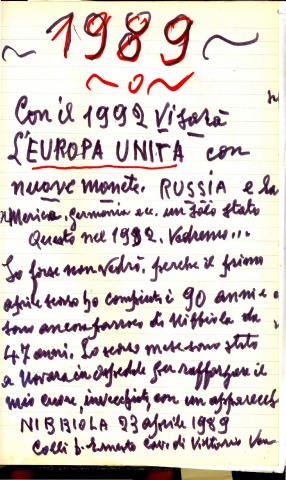 ~ 1989 ~
~o~
Con il 1992 Vi sarà
L'EUROPA UNITA con
nuove monete. RUSSIA e la
Merica, germania ec. un solo stato
Questo nel 1992. Vedremo...
Io forse non vedrò. perche il primo
aprile scorso ho compiuti i 90 anni e
sono ancora parroco di Nibbiola da
47 anni. Lo scorso mese sono stato
a Novara in Ospedale per rafforzare il
mio cuore, invecchiato, con un apparecch
NIBBIOLA 23 aprile 1989
Colli D. Ernesto Cav. di Vittorio Ven